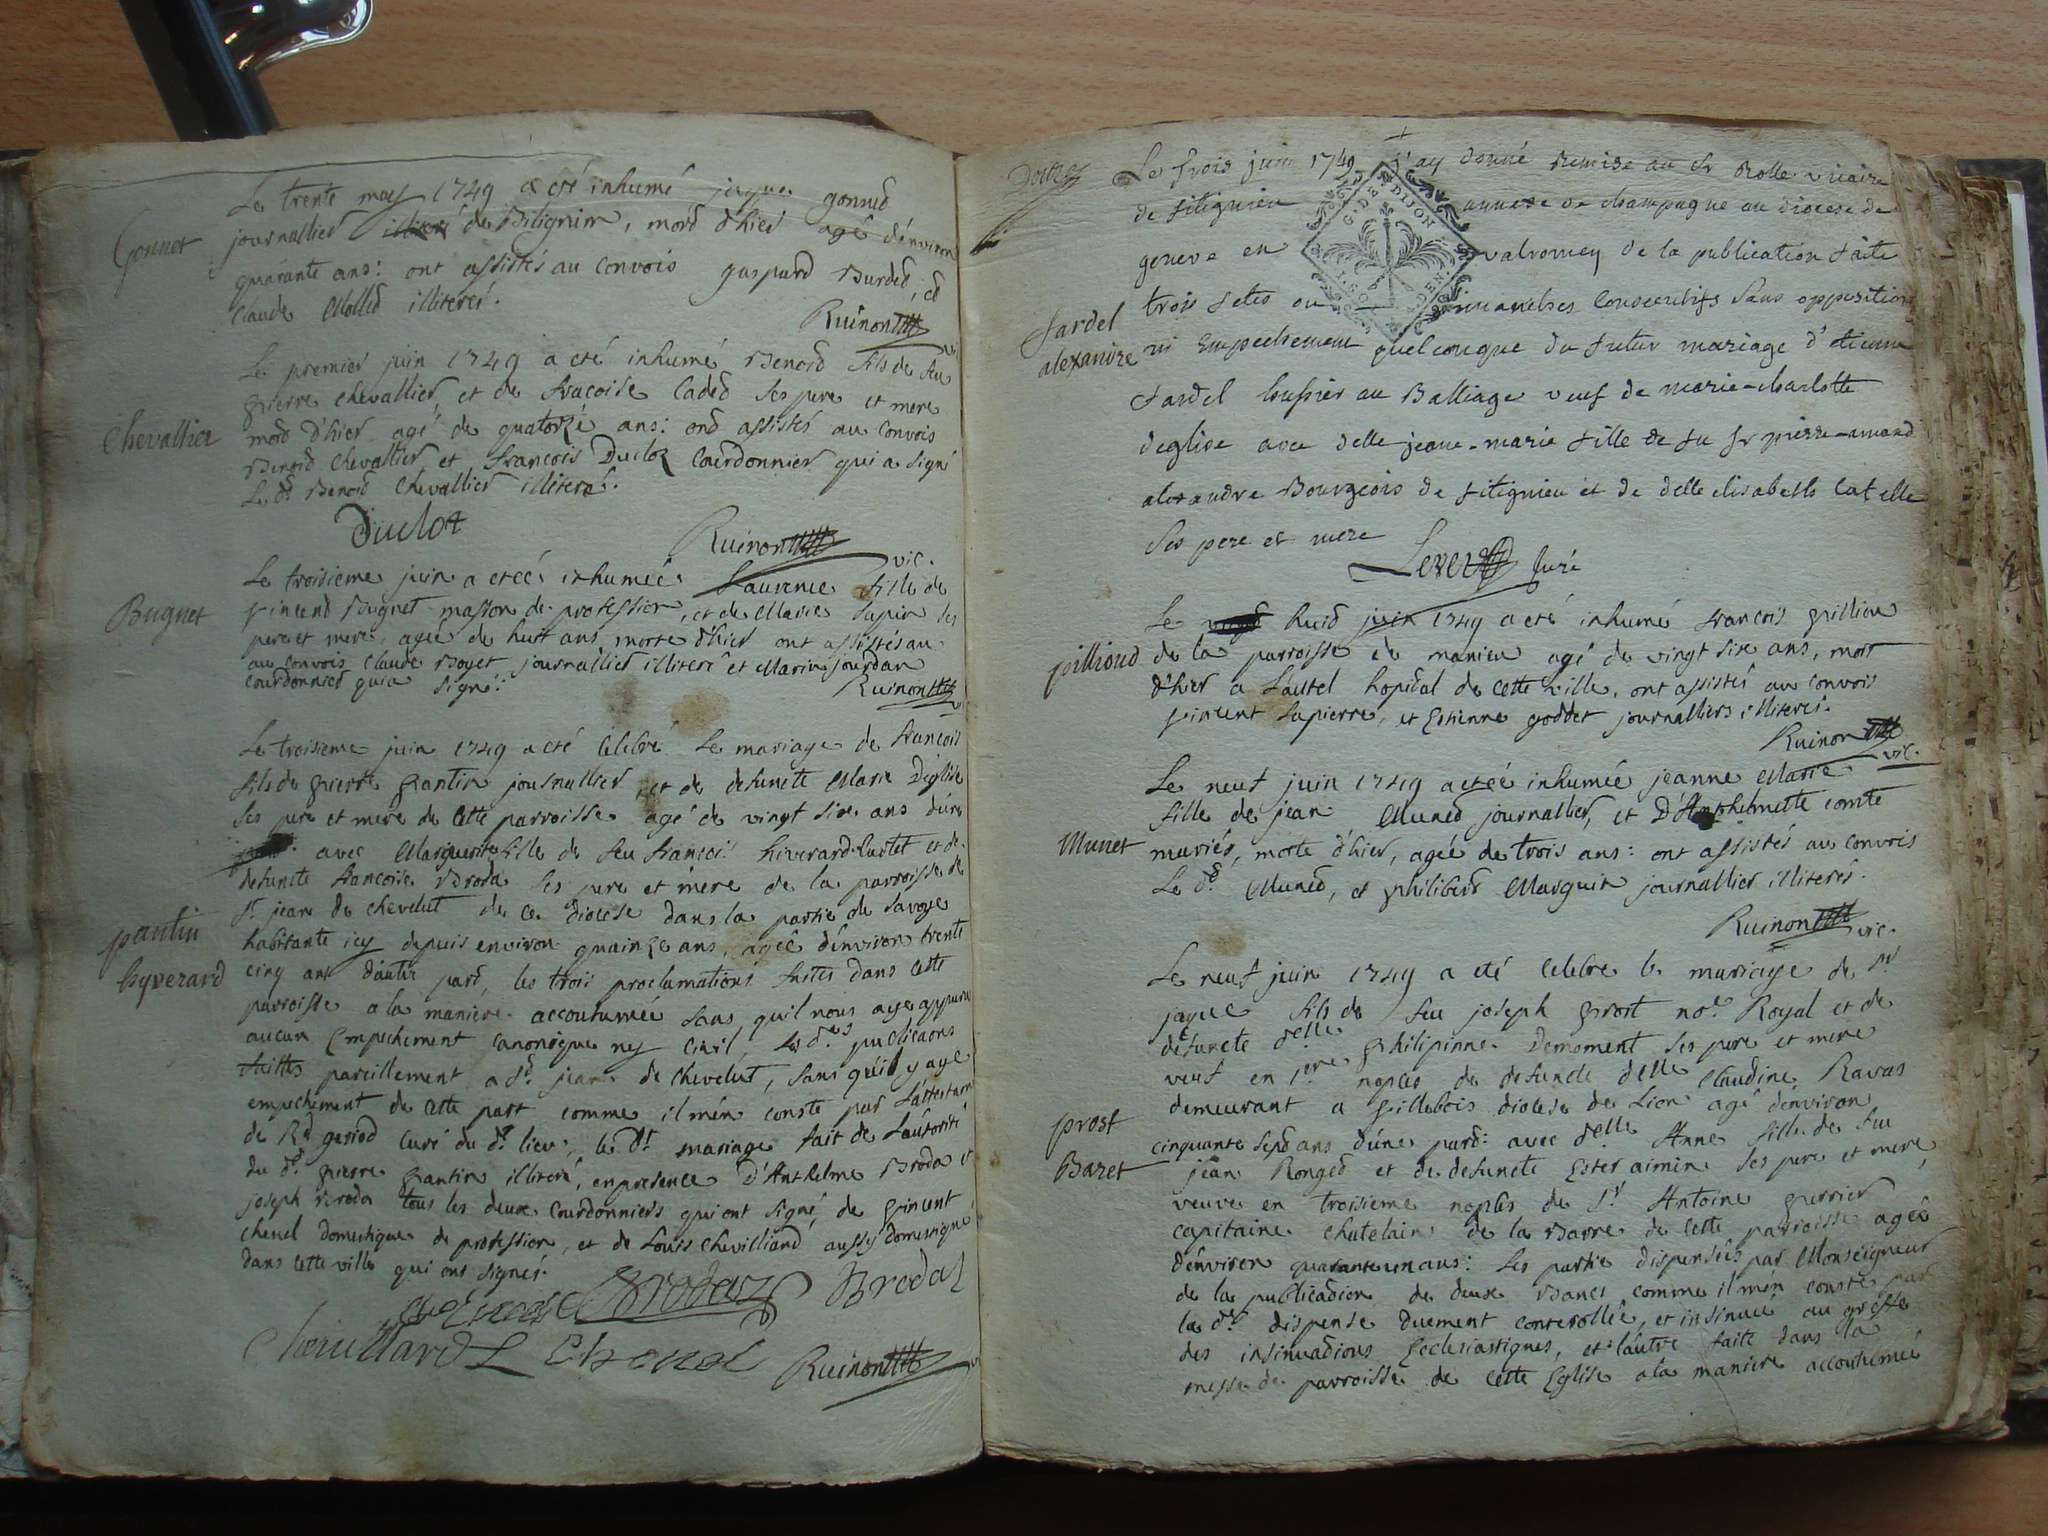 Gonnet
Le trente may 1749 a eté inhumé jaque gonned
journallier de Bilignin, mord d'hier agé d'environ
quarante ans: ont assistés au convois gaspard Burded, ed
Claude Mollid illiterés.
Ruinon
Le premier juin 1749 a eté inhumé Benoid fils de feu
Chevallier
pierre chevallier et de francoise Caded ses pere et mere
mord d'hier agé de quatorze ans: ond assistés au convois
Benoid chevallier et francois Ducloz Courdonnier qui a signé
Le dt Benoid chevallier illiteré.
Duclot
Ruinon vic.
Bugnet
Le troisieme juin a eteé inhumée Laurence fille de
vincend Bugnet masson de profession, et de Marie Lapin ses
pere et mere, ageé de huit ans, morte d'hier ont assistés au
au convois Claude Boyet journallier illiteré et Marin jourdan
courdonnier qui a signé.
Ruinon
Le troisieme juin 1749 a eté Celebré Le mariage de francois
fils de pierre pantin journallier et de defuncte Marie Déglise
ses pere et mere de cette parroisse agé de vingt six ans d'une
avec Marguerite fille de feu francois hiverard et de
defuncte francoise Broda ses pere et mere de la parroisse de
St jean de chevelut de ce diocese dans la partie de Savoye
pantin
hyverard
habitante icy depuis environ quainze ans, ageé d'environ trente
cinq ans d'autre pard, les trois proclamations faites dans cette
parroisse a la maniere accoutumée sans qu'il nous aye apparu
aucun Empechement canonique ny civil, les dtes publicaons
faittes pareillement a St jean de Chevelut, sans qu'il y aye
empechement de cette part comme il m'en conste par Lattestaon
de Rd geriod curé du dt lieu; le dt mariage fait de L'autorité
du dt pierre pantin illiteré, en presence D'Anthelme Broda et
joseph Broda tous les deux Courdonniers qui ont signé, de vincent
chenel domestique de profession, et de Louis chevilliard aussy domestique
dans cette ville qui ont signés.
Brodaz Brodaz
Cheuillard L Chenel Ruinon
Le trois juin 1749 j'ay donné Remise au Sr Rolle vicaire
de fitignieu annexe de champagne au diocese de
geneve en valromey de la publication faite
G.D DIJON
trois fetes ou dimanches Consecutifs Sans opposition
fardel
alexandre
ni Empechement quelconque du futur mariage d'etienne
fardel huissier au Balliage veuf de marie-charlotte
deglise avec delle jeane-marie fille de fu Sr pierre-amand
alexandre Bourgeois de fitignieu et de delle elisabeth Catelle
Ses pere et mere
Curé
Le huid juin 1749 a eté inhumé francois pillion
pillioud
de la parroisse de manieu agé de vingt six ans, mort
d'hier a L'autel hopital de cette ville, ont assistés au convois
vincent Lapierre, et Estienne goddet journalliers illiterés.
Ruinon vic.
Le neuf juin 1749 a eteé inhumée jeanne Marie
fille de jean Muned journallier, et D'Anthelmette comte
Munet
mariés, morte d'hier, ageé de trois ans: ont assistés au convois
Le dt Muned, et philiberd Marguin journallier illiterés.
Ruinon vic.
Le neuf juin 1749 a eté Celebre le mariage de Sr
jaque fils de feu joseph prost nore Royal et de
defuncte delle philipinne Demoment ses pere et mere
veuf en 1eres nopces de defuncte delle Claudine Ravas
demeurant a villebois diocese de Lion agé d'environ
prost
Bazet
cinquante sept ans d'une pard: avec delle Anne fille de feu
jean Ronged et de defuncte Ester aimin ses pere et mere
veuve en troisieme nopces de Sr Antoine perrier
capitaine chatelain de la Barre de cette parroisse ageé
d'environ quarante un ans: Les partie dispensées par Monseigneur
de la publicadion de deux Bancs comme il m'en conste par
la dte dispense duement controllée, et insinueé au greffe
des insinuadions Ecclesiastiques, et l'autre faite dans la
messe de parroisse de cette Eglise a la maniere accoutumée